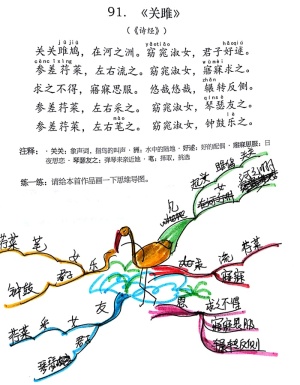 91. 《关雎》
(《诗经》)
jū jiū
yǎo tiǎo
hǎo qiú
关关雎鸠，在河之洲。窈窕淑女，君子好逑。
cēn cī xìng
wù mèi
参差荇菜，左右流之。窈窕淑女，寤寐求之。
zhǎn
求之不得，寤寐思服。悠哉悠哉，辗转反侧。
参差荇菜，左右采之。窈窕淑女，琴瑟友之。
mào
参差荇菜，左右芼之。窈窕淑女，钟鼓乐之。
注释：·关关：象声词，雌鸟的叫声·洲：水中的陆地·好逑：好的配偶·寤寐思服：日
夜思恋·琴瑟友之：弹琴来亲近她·芼：择取，挑选
练一练：请给本首作品画一下思维导图。
雎鸠 关关
女
荇菜 芼
女
君子 乐
钟鼓
求 流 荇菜
寤寐
荇菜 采 女
友
君
琴瑟
思 求不得
寤寐思服
辗转反侧